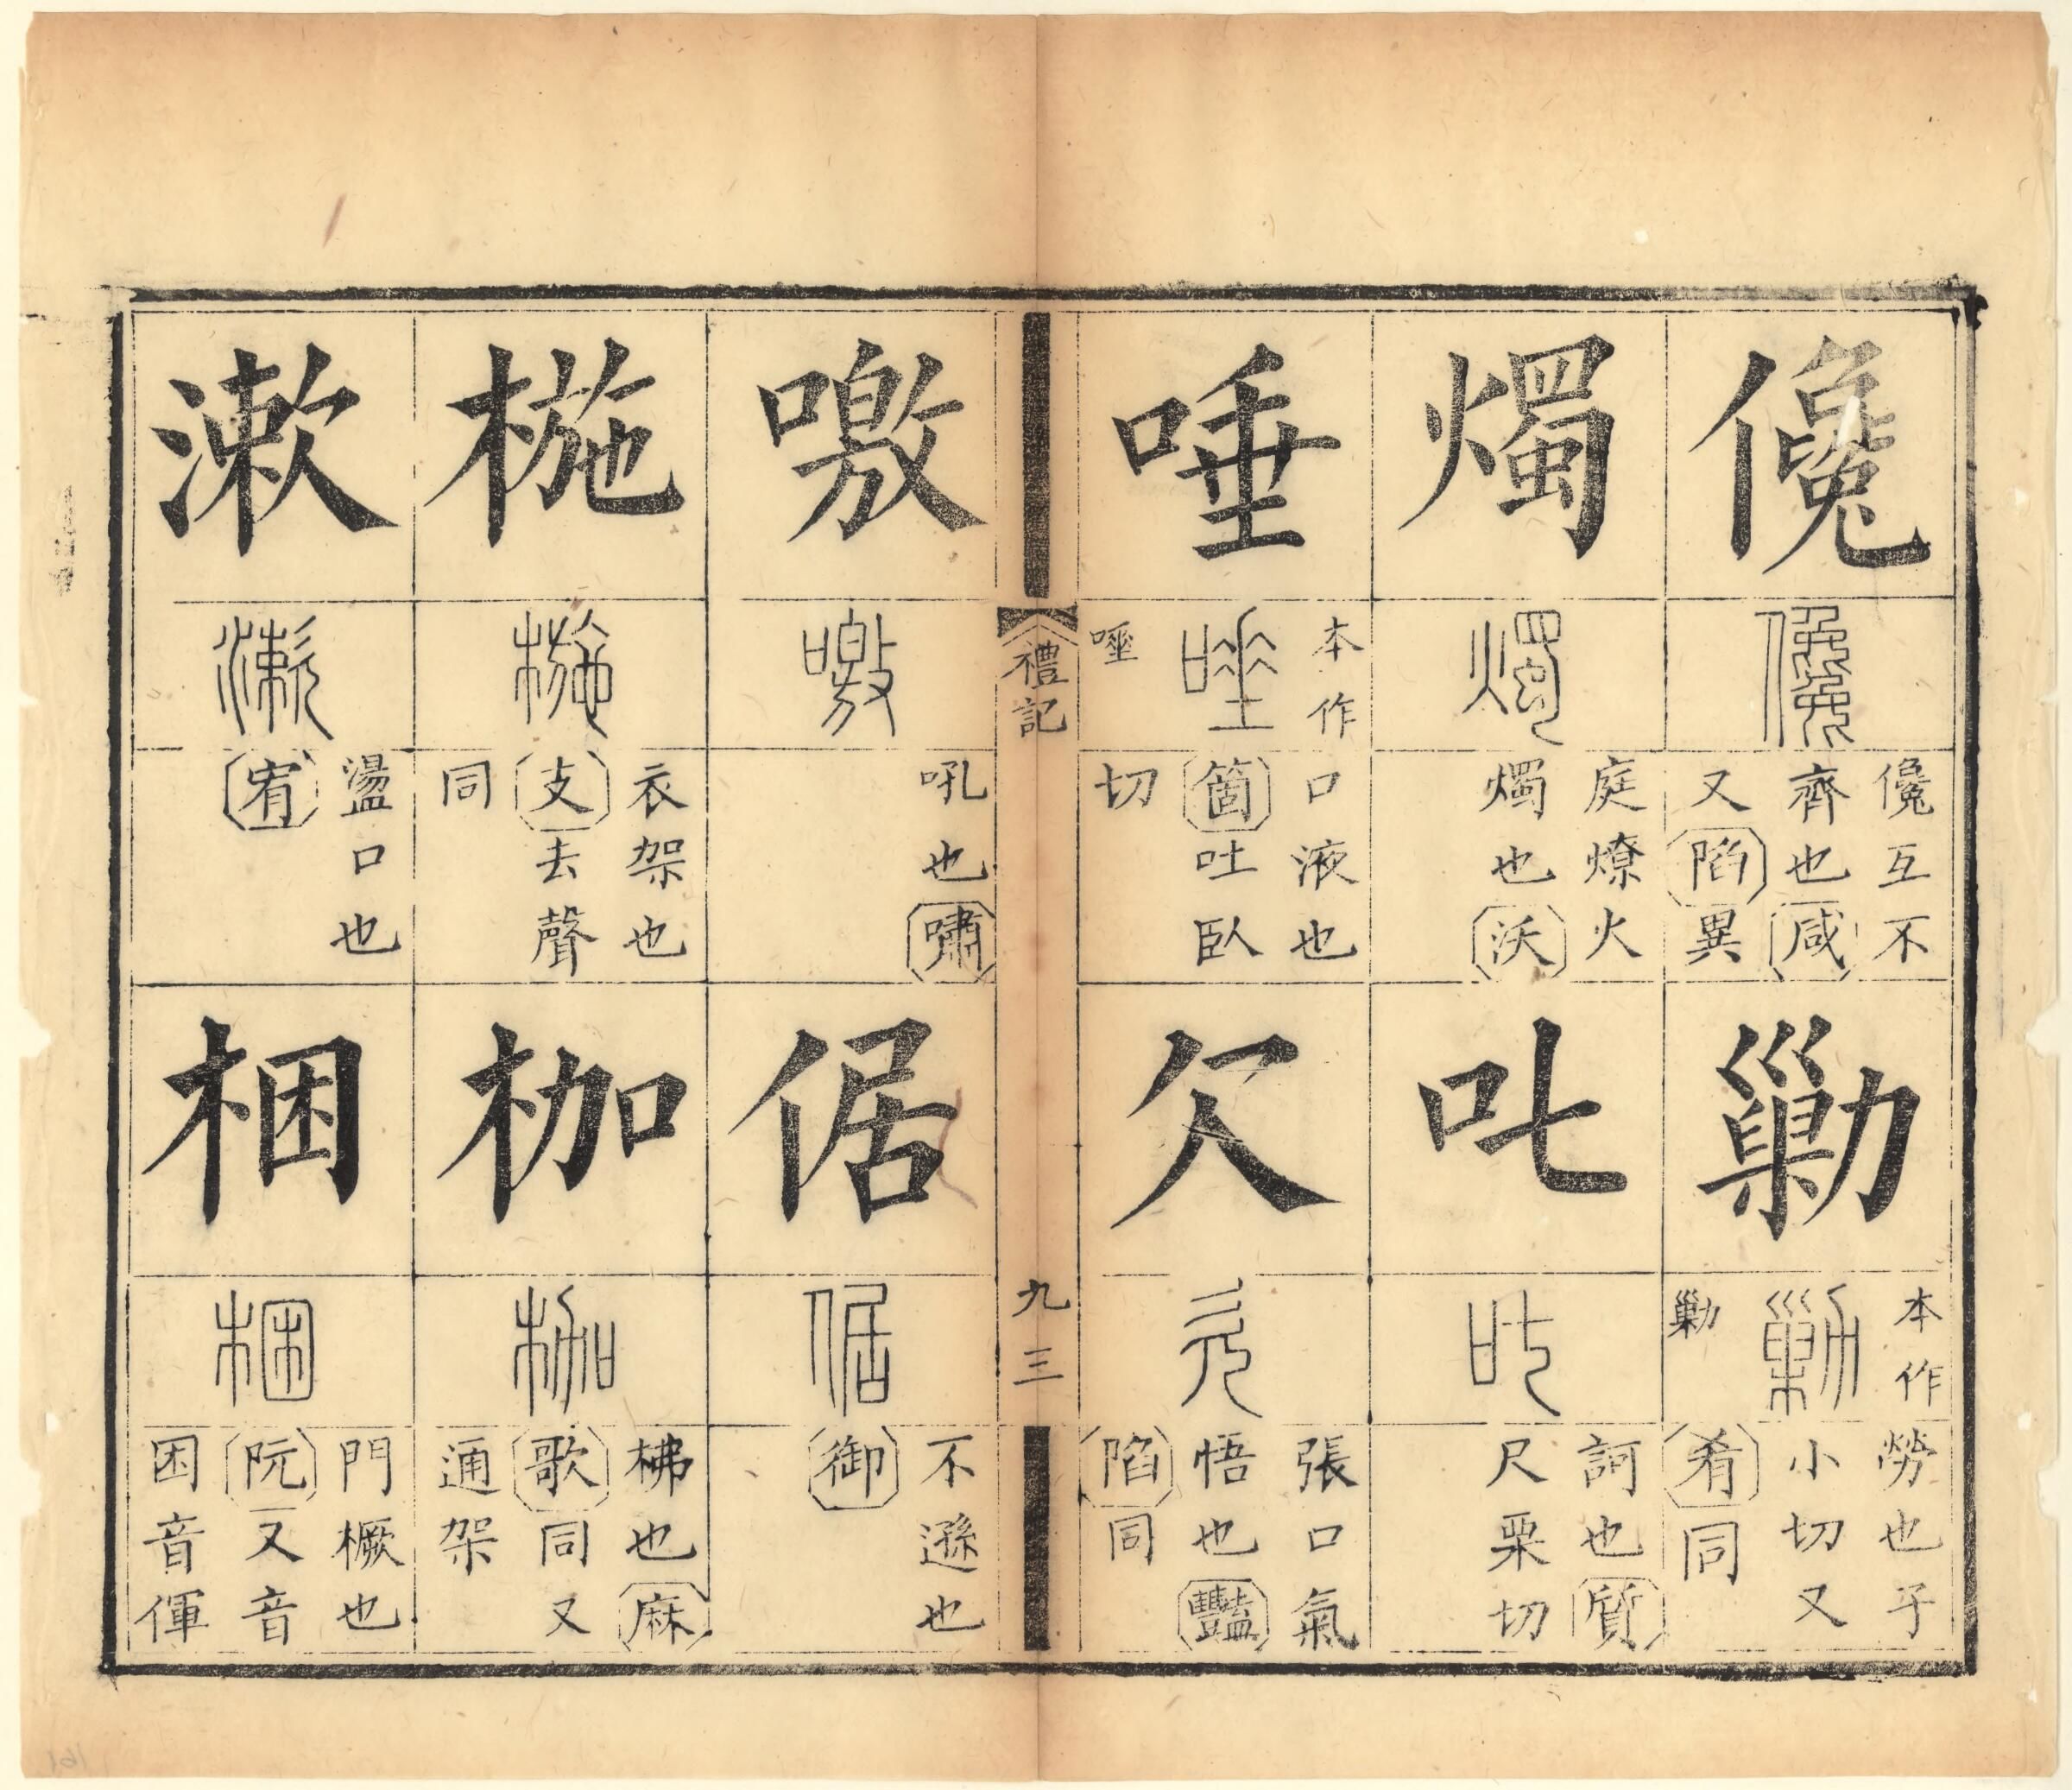 儳
儳互不
齊也咸
又陷異
勦
本作
勦
勞也子
小切又
肴同
燭
庭燎火
燭也沃
叱
訶也質
尺栗切
唾
本作
唾
口液也
箇吐臥
切
欠
張口氣
悟也豔
陷同
禮記
九三
噭
吼也嘯
倨
不遜也
御
椸
衣架也
支去聲
同
枷
梻也麻
歌同又
通架
漱
盪口也
宥
梱
門橛也
阮又音
困音渾